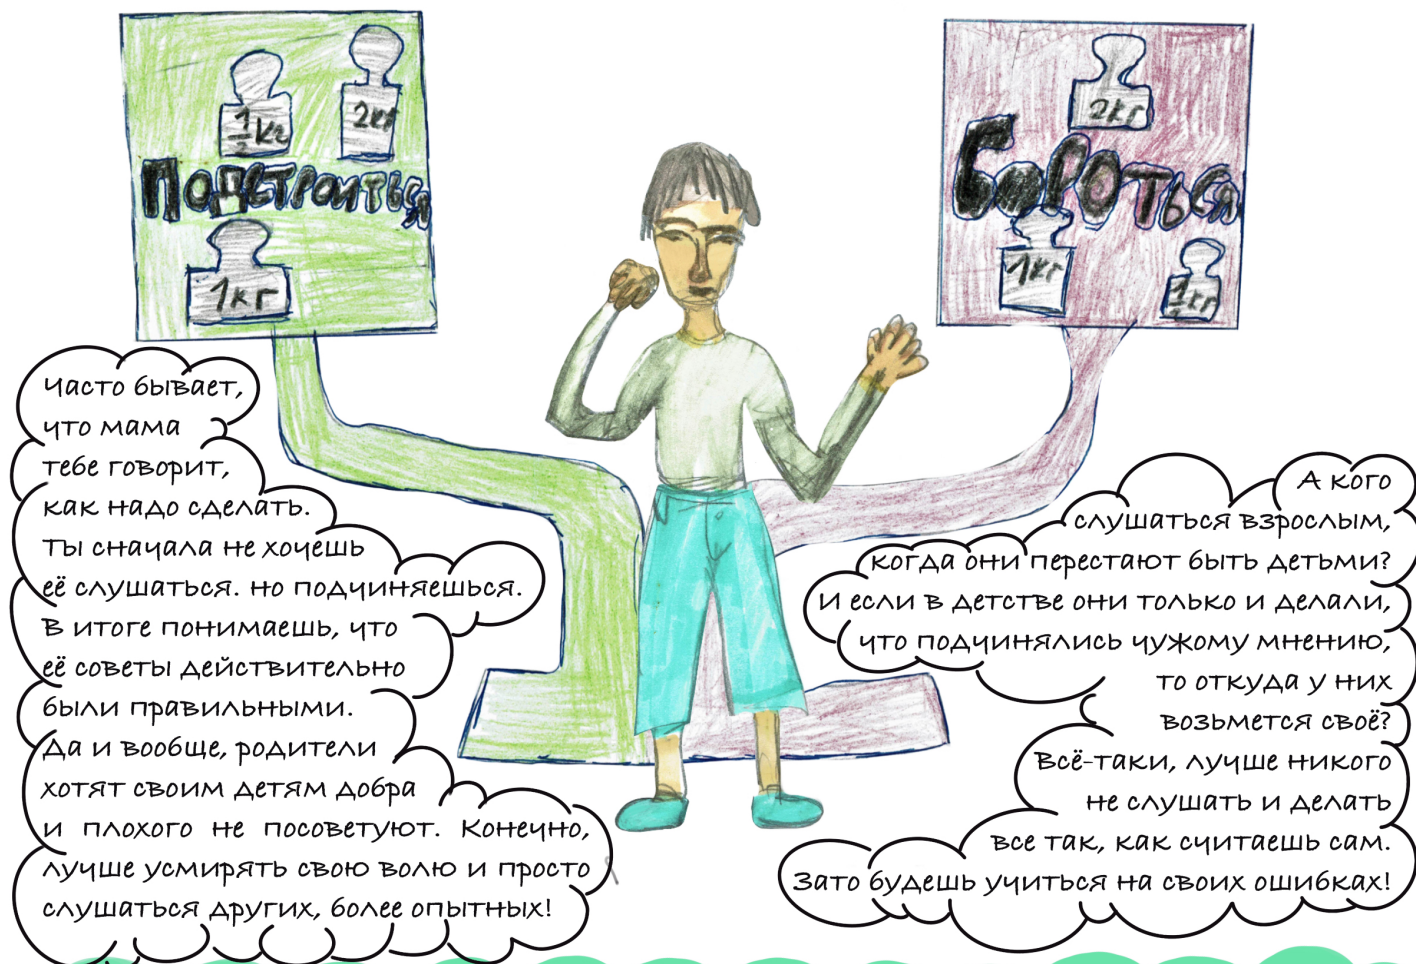 1/2 кг
2кг
Подстроиться
1кг
2кг
Бороться
1кг
1/2 кг
Часто бывает,
что мама
тебе говорит,
как надо сделать.
Ты сначала не хочешь
её слушаться. но подчиняешься.
В итоге понимаешь, что
её советы действительно
были правильными.
Да и вообще, родители
хотят своим детям добра
и плохого не посоветуют. Конечно,
лучше усмирять свою волю и просто
слушаться других, более опытных!
А кого
слушаться взрослым,
когда они перестают быть детьми?
И если в детстве они только и делали,
что подчинялись чужому мнению,
то откуда у них
возьмется своё?
Всё-таки, лучше никого
не слушать и делать
все так, как считаешь сам.
Зато будешь учиться на своих ошибках!